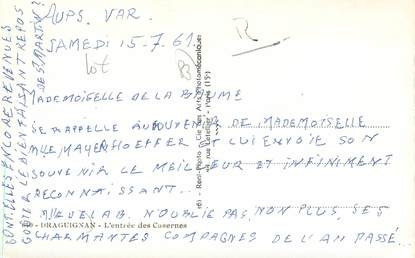 AUPS. VAR.
SAMEDI 15-7.61.
lot
R
B
MADEMOISELLE DE LA BAUME
SE RAPPELLE AU SOUVENIR DE MADEMOISELLE
MLLE MAYERHOEFFER ET LUI ENVOIE SON
SOUVENIR LE MEILLEUR ET INFINIMENT
RECONNAISSANT...
MLLE DE LA B. N'OUBLIE PAS, NON PLUS, SES
CHARMANTES COMPAGNES DE L'AN PASSÉ...
SONT-ELLES ENCORE REVENUES
GOÛTER LE BIENFAISANT REPOS
DE ST MARTIN?
DRAGUIGNAN - L'entrée des Casernes
Cie des Arts Photomécaniques